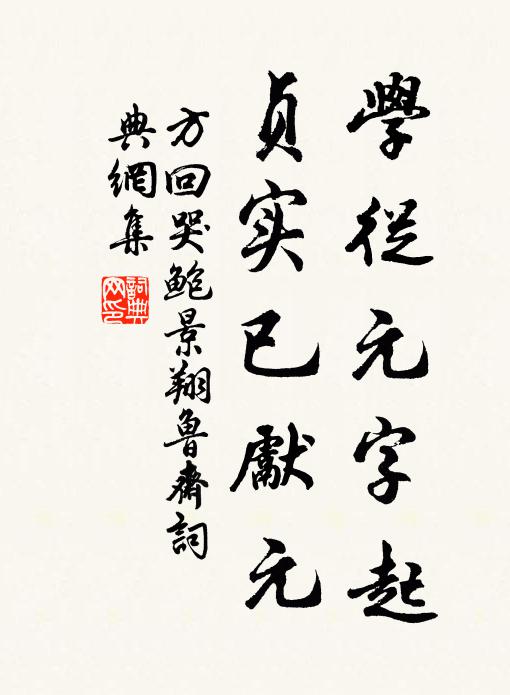 學從元字起
貞实已獻元
方回哭鲍景翔魯齋詞
典網集
詞典网印